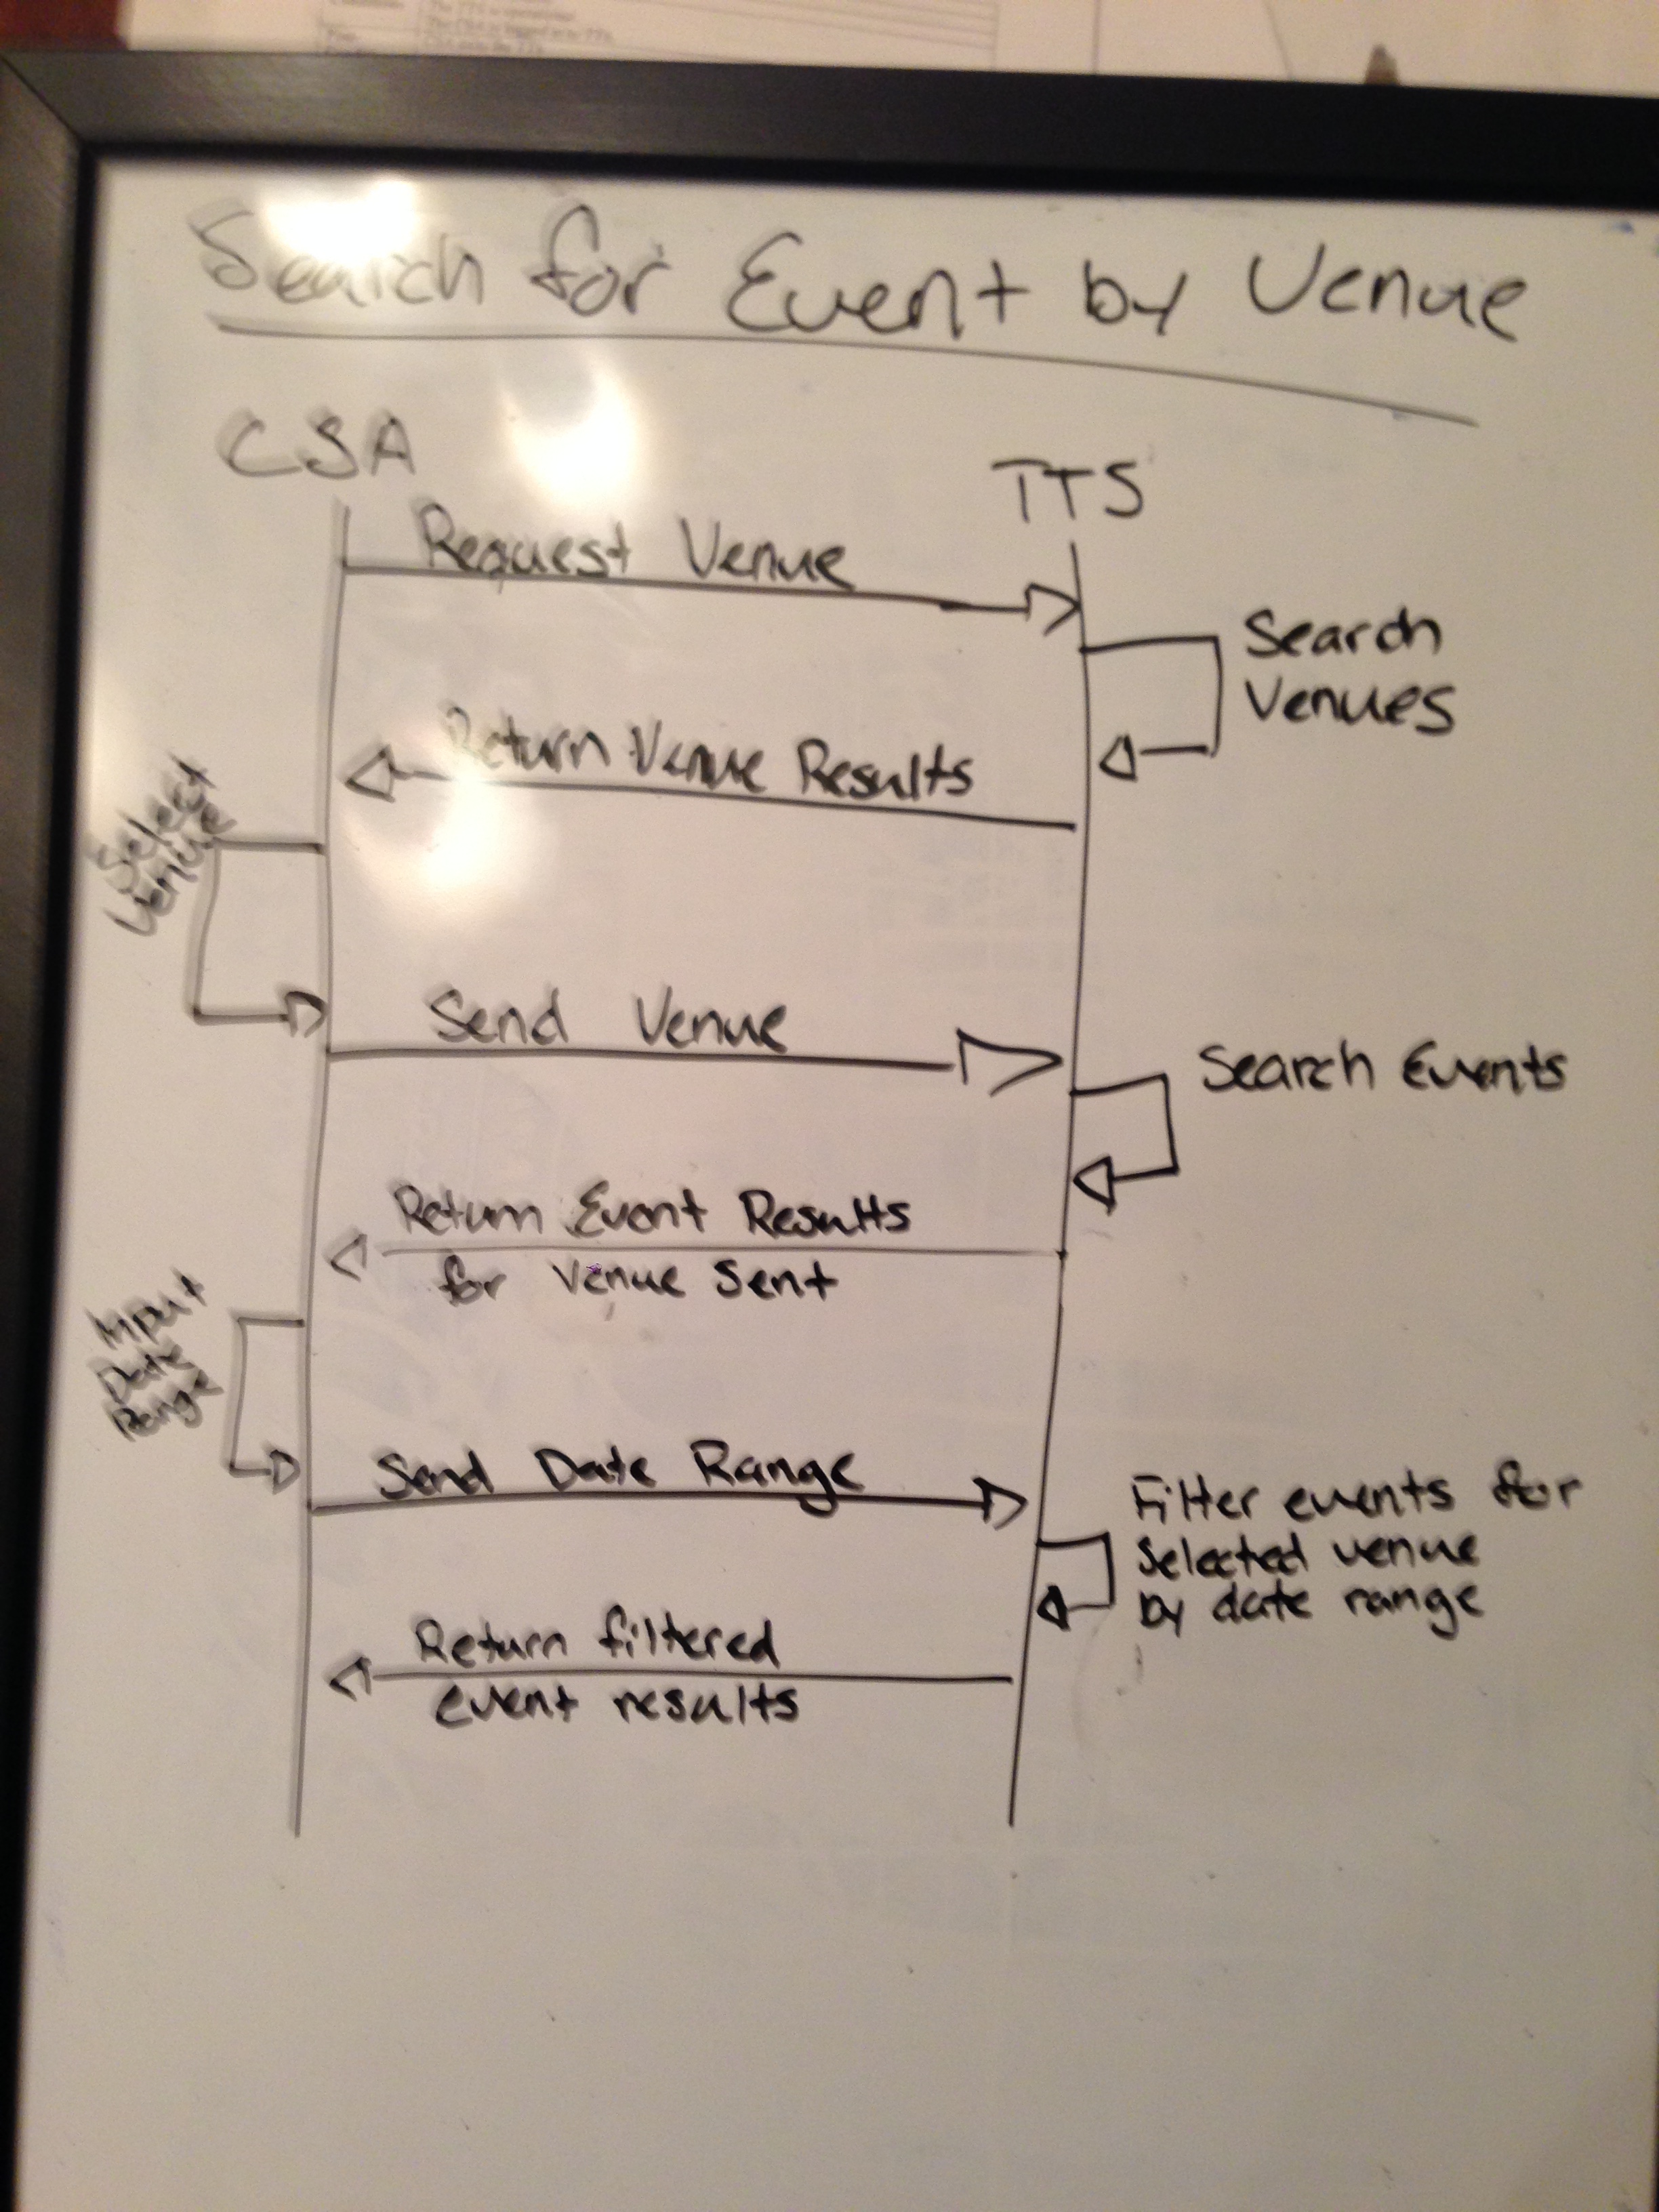 Search for Event by Venue
CSA
TTS
Request Venue
Search
Venues
Return Venue Results
Select
Venue
Send Venue
Search Events
Return Event Results
for Venue Sent
Input
Date
Range
Send Date Range
Filter events for
Selected venue
by date range
Return filtered
event results